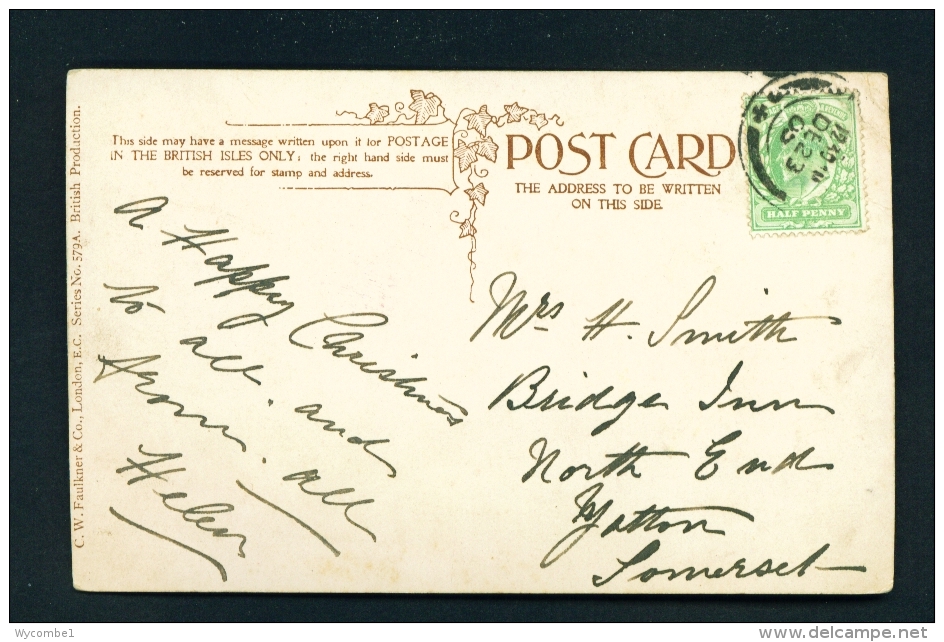 C. W. Faulkner & Co., London, E.C. Series No. 579A. British Production.
This side may have a message written upon it for POSTAGE
IN THE BRITISH ISLES ONLY; the right hand side must
be reserved for stamp and address.
POST CARD
THE ADDRESS TO BE WRITTEN
ON THIS SIDE.
HALF PENNY
DE 23
05
A Happy Christmas
to all and
from all
Helen
Mrs H. Smith
Bridge Inn
North End
Yatton
Somerset
Wycombe1
www.delcampe.net